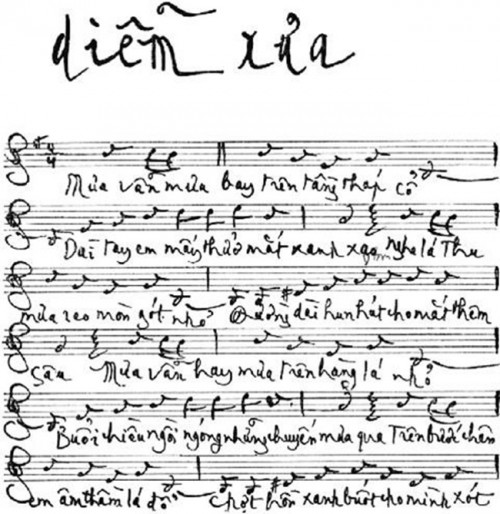 diễm xưa
Mưa vẫn mưa bay trên tầng tháp cổ
Dài tay em mấy thuở mắt xanh xao Nghe lá Thu
mưa reo mòn gót nhỏ Đường dài hun hút cho mắt thêm
sâu Mưa vẫn hay mưa trên hàng lá nhỏ
Buổi chiều ngồi ngóng những chuyến mưa qua Trên bước chân
em âm thầm lá đổ Chợt hồn xanh buốt cho mình xót